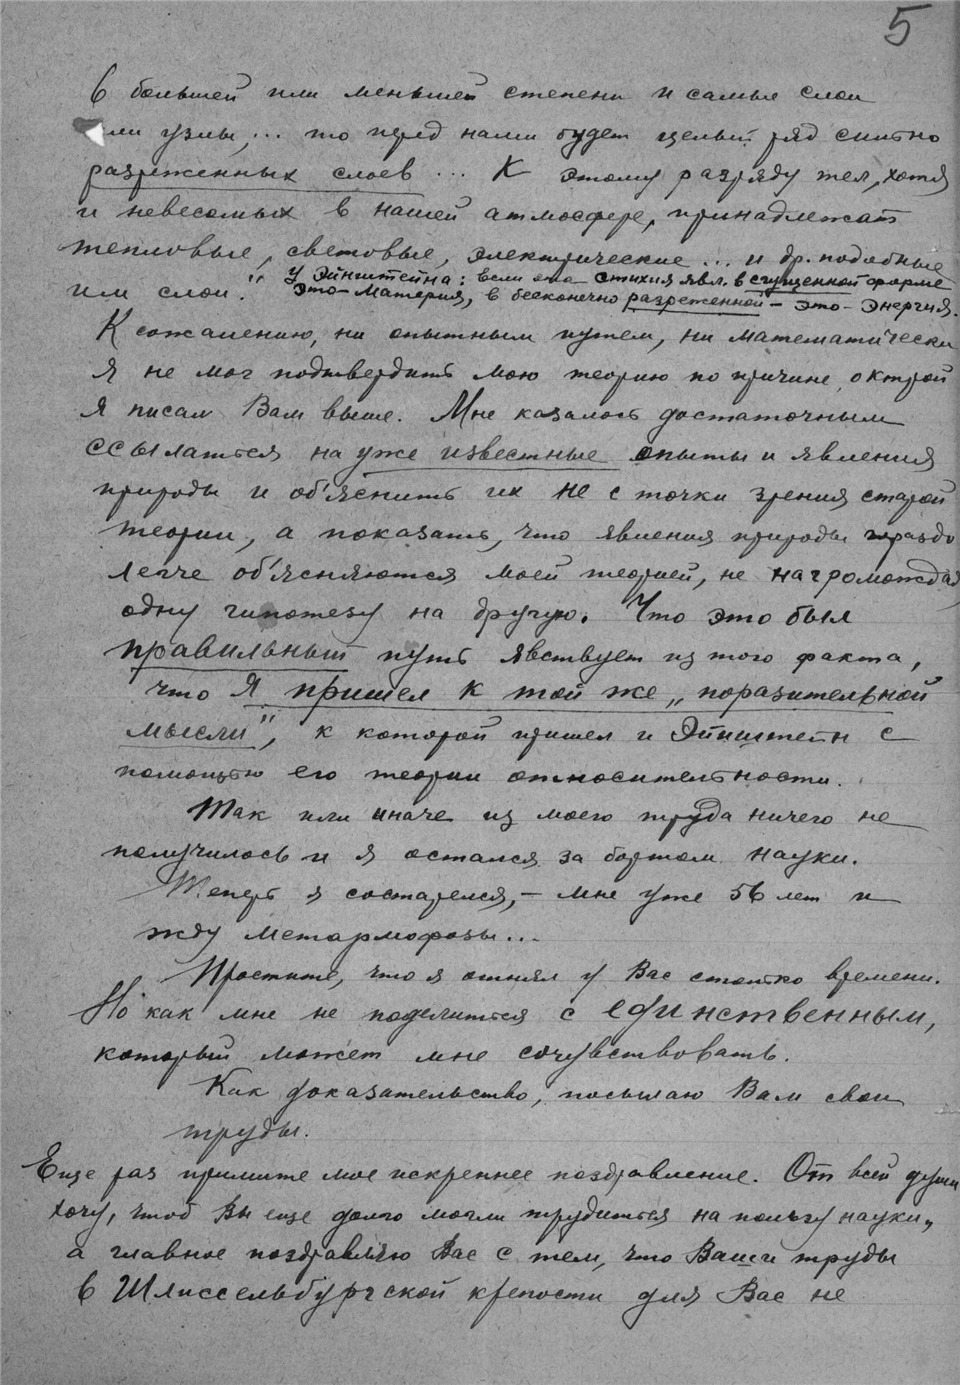 5
в большей или меньшей степени и самые слои
ли узлы, ... то перед нами будет целый ряд
разреженных слоев ... К этому разряду тел, хотя
и невесомых в нашей атмосфере, принадлежат
тепловые, световые, электрические ... и др. подобные
им слои."
У Эйнштейна: если эта стихия явл. в сгущенной форме
это - материя, в бесконечно разреженной - это - энергия.
К сожалению, ни опытным путем, ни математически
я не мог подтвердить мою теорию по причине, о ктрой
я писал Вам выше. Мне казалось достаточным
ссылаться на уже известные опыты и явления
природы и об'яснить их не с точки зрения старой
теории, а показать, что явления природы гораздо
легче об'ясняются моей теорией, не нагромождая
одну гипотезу на другую. Что это был
правильный путь явствует из того факта,
что я пришел к той же „поразительной
мысли", к которой пришел и Эйнштейн с
помощью его теории относительности.
Так или иначе из моего труда ничего не
получилось и я остался за бортом науки.
Теперь я состарелся, - мне уже 56 лет и
жду метармофозы...
Простите, что я отнял у Вас столько времени.
Но как мне не поделиться с единственным,
который может мне сочувствовать.
Как доказательство, посылаю Вам свои
труды.
Еще раз примите мое искреннее поздравление. От всей души
хочу, чтоб Вы еще долго могли трудиться на пользу науки,
а главное поздравляю Вас с тем, что Ваши труды
в Шлиссельбургской крепости для Вас не